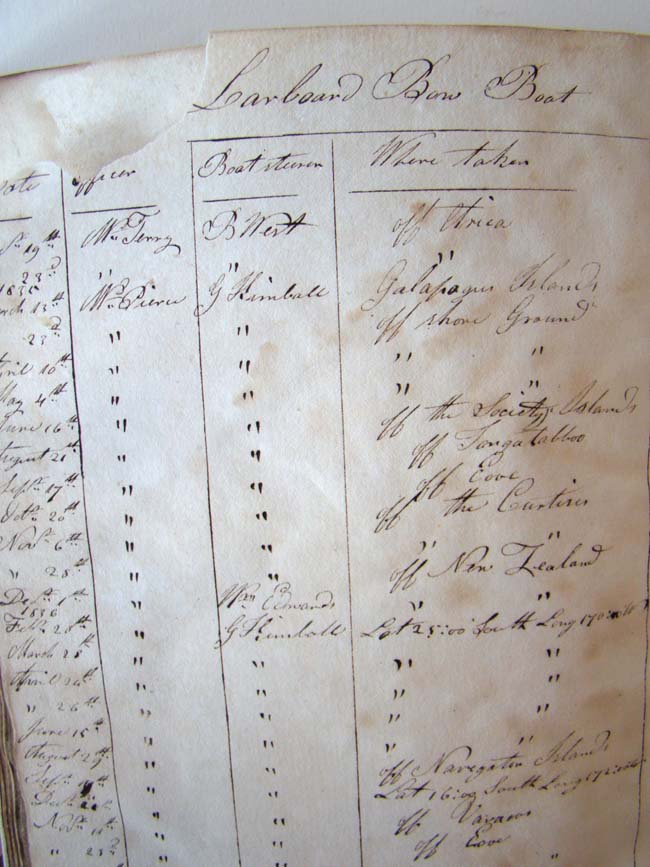 Larboard Bow Boat
Officer Boatsteerer Where taken
19th Mr Terry B West off Arica
23d " " "
1835
March 13th Mr Pierce G Kimball Galapagus Islands
23d " " off shore Ground
April 10th " " " "
May 4th " " " "
June 16th " " off the Society Islands
August 21st " " off Tongatabboo
Septr 17th " " off Eove
Octr 20th " " off the
Novr 6th " " "
" 28th " " off New Zealand
Decr Wm Edwards "
1836
Feby 20th " G Kimball Lat 25:00 South Long 170:00 W
March 25th " " " "
April 24th " " " "
" 26th " " " "
June 15th " " " "
August 29th " " off Navegator Islands
Septr " " Lat 16:00 South Long 172:00
" " off
Novr 11th " " off Eove
" 23d "